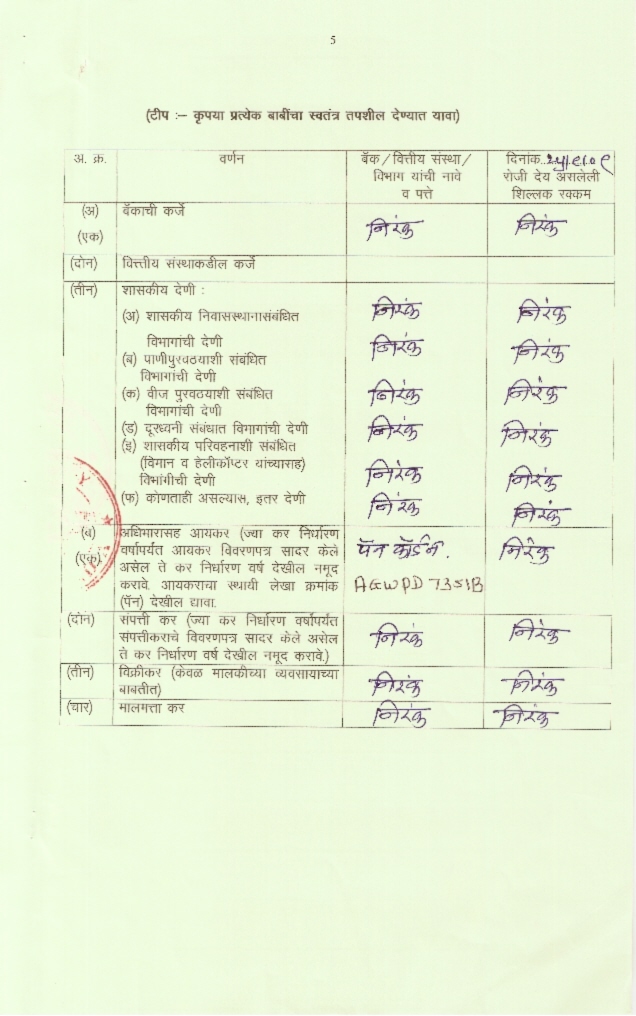 5
(टीप :– कृपया प्रत्येक बाबींचा स्वतंत्र तपशील देण्यात यावा)
अ. क्र. वर्णन बॅक/वित्तीय संस्था/ दिनांक
विभाग यांची नावे रोजी देय असलेली
व पत्ते शिल्लक रक्कम
(अ) बॅकाची कर्जे
(एक) निरंक निरंक
(दोन) वित्त्तीय संस्थाकडील कर्जे
(तीन) शासकीय देणी :
(अ) शासकीय निवासस्थानासंबंधित निरंक निरंक
विभागांची देणी निरंक निरंक
(ब) पाणीपुरवठयाशी संबंधित
विभागांची देणी
(क) वीज पुरवठयाशी संबंधित निरंक निरंक
विभागांची देणी
(ड) दूरध्वनी संबंधात विभागांची देणी निरंक निरंक
(इ) शासकीय परिवहनाशी संबंधित
(विमान व हेलीकॉप्टर यांच्यासह) निरंक निरंक
विभांगीची देणी
(फ) कोणताही असल्यास, इतर देणी निरंक निरंक
(ब) अधिभारासह आयकर (ज्या कर निर्धारण
(एक) वर्षापर्यंत आयकर विवरणपत्र सादर केले पॅन कॉर्ड नं. निरंक
असेल ते कर निर्धारण वर्ष देखील नमूद
करावे. आयकराचा स्थायी लेखा क्रमांक AGWPD7351B
(पॅन) देखील द्यावा.
(दोन) संपत्ती कर (ज्या कर निर्धारण वर्षापर्यंत
संपत्तीकराचे विवरणपत्र सादर केले असेल निरंक निरंक
ते कर निर्धारण वर्ष देखील नमूद करावे.)
(तीन) विक्रीकर (केवळ मालकीच्या व्यवसायाच्या निरंक निरंक
बाबतीत)
(चार) मालमत्ता कर निरंक निरंक